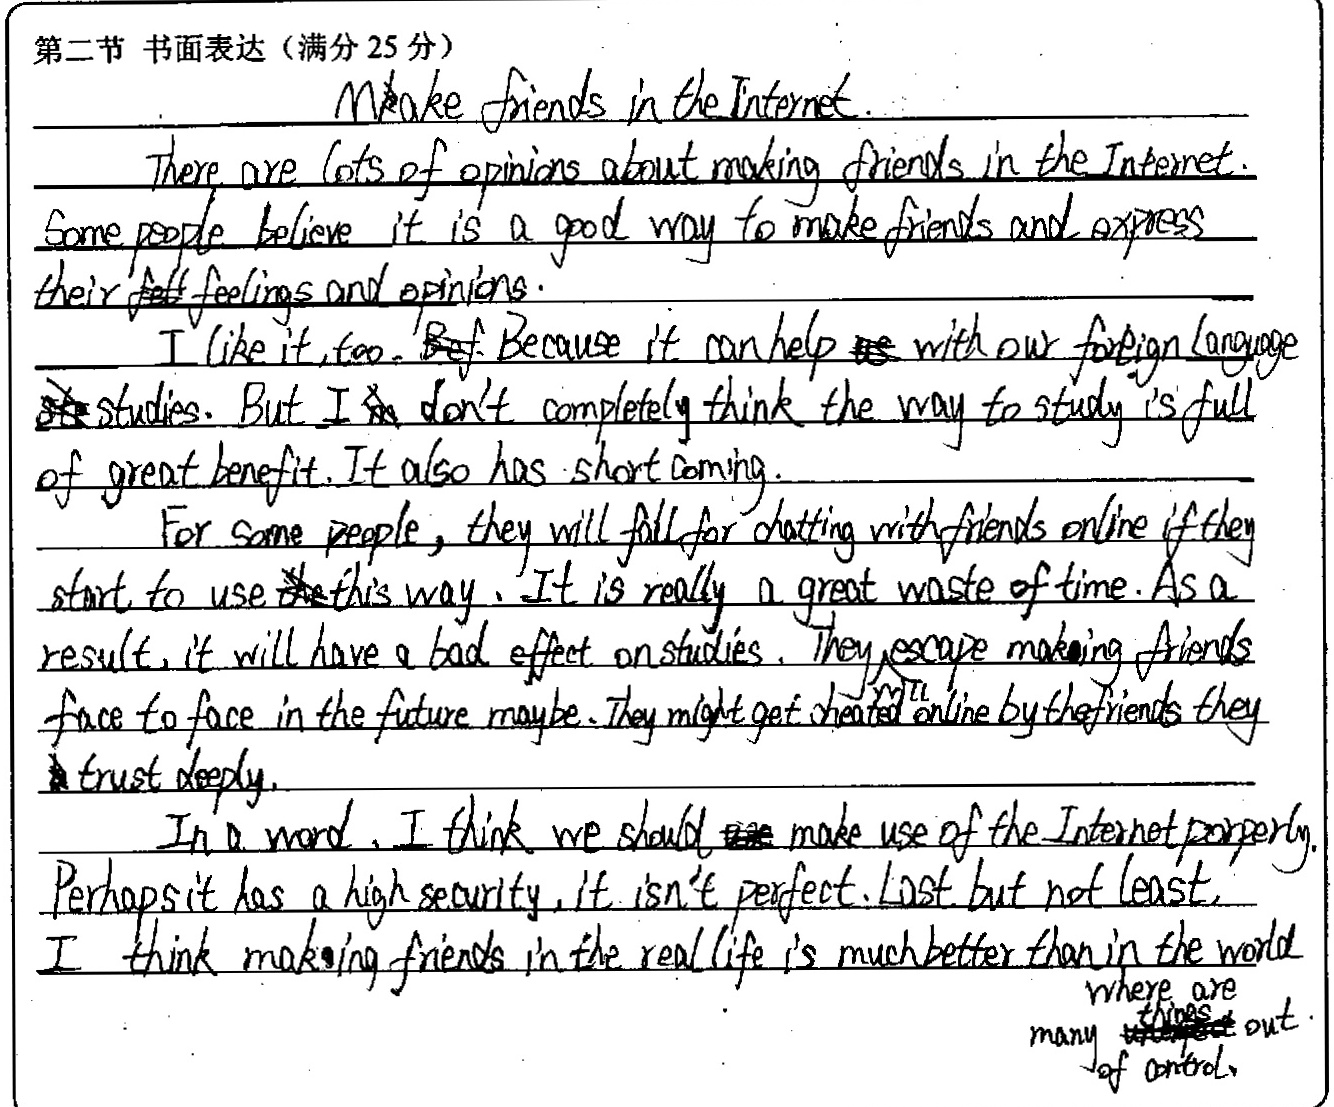 第二节 书面表达（满分 25 分）
Make friends in the Internet.
There are lots of opinions about making friends in the Internet.
Some people believe it is a good way to make friends and express
their feelings and opinions.
I like it, too. Because it can help with our foreign language
studies. But I don't completely think the way to study is full
of great benefit. It also has short coming.
For some people, they will fall for chatting with friends online if they
start to use this way. It is really a great waste of time. As a
result, it will have a bad effect on studies. They will escape making friends
face to face in the future maybe. They might get cheated online by the friends they
trust deeply.
In a word, I think we should make use of the Internet porperly.
Perhaps it has a high security, it isn't perfect. Last but not least,
I think making friends in the real life is much better than in the world
where are
many things out
of control.